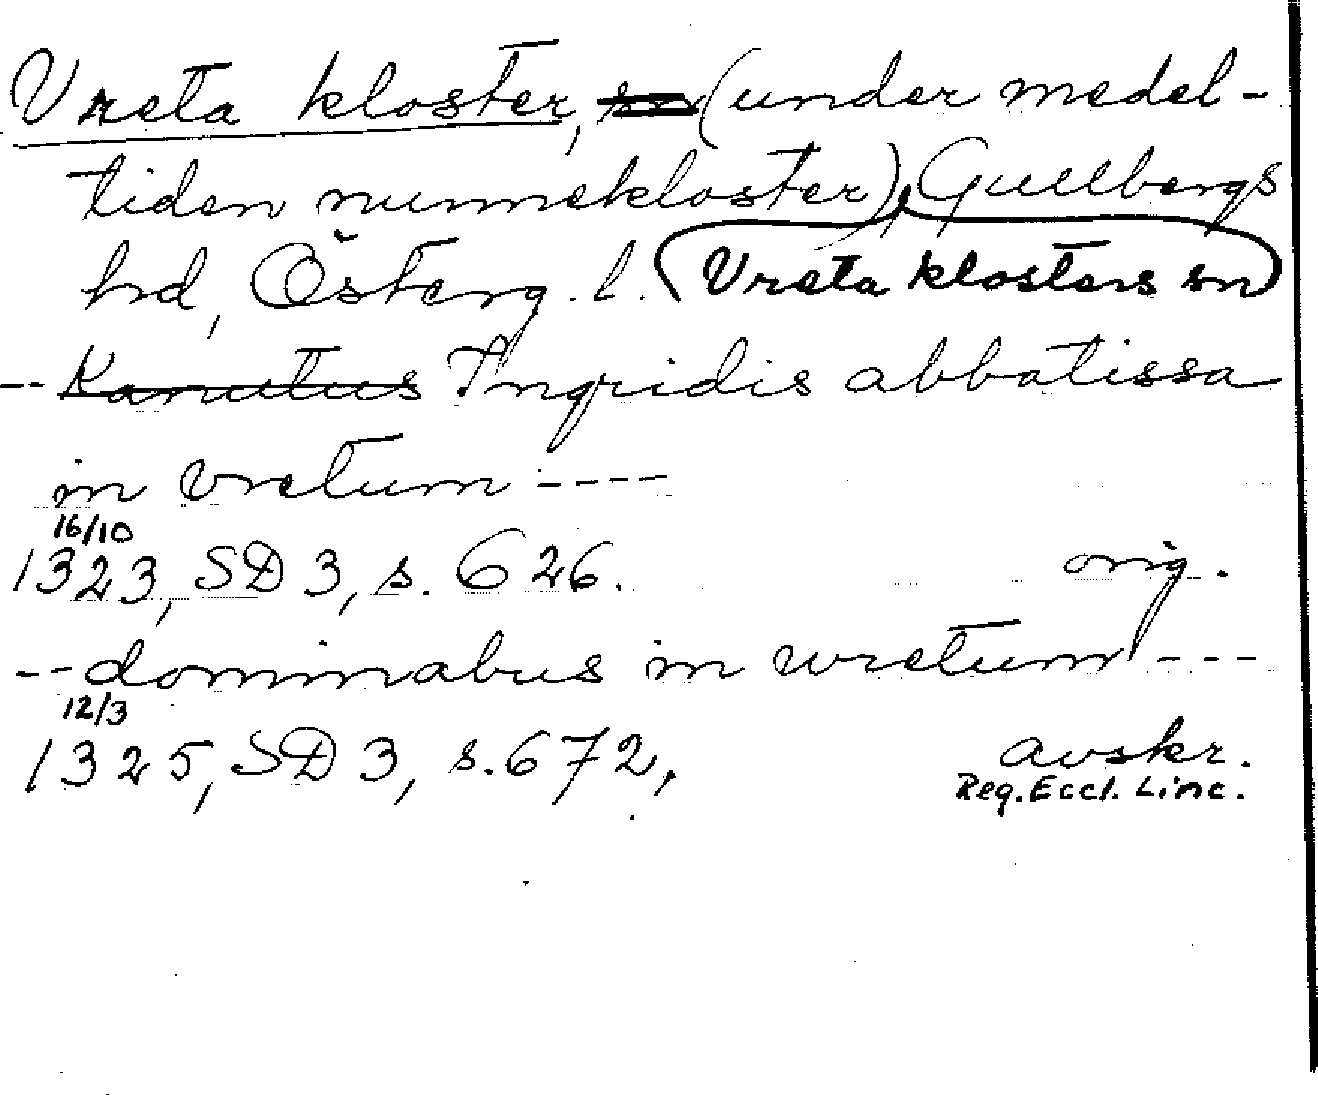 Vreta kloster, sn (under medel-
tiden nunnekloster), Gullbergs
hd, Österg. l. Vreta klosters sn
-- Kanutus Ingridis abbatissa
in vretum ----
16/10
1323, SD 3, s. 626. orig.
-- dominabus in wretum ---
12/3
1325, SD 3, s. 672, avskr.
Reg. Eccl. Linc.